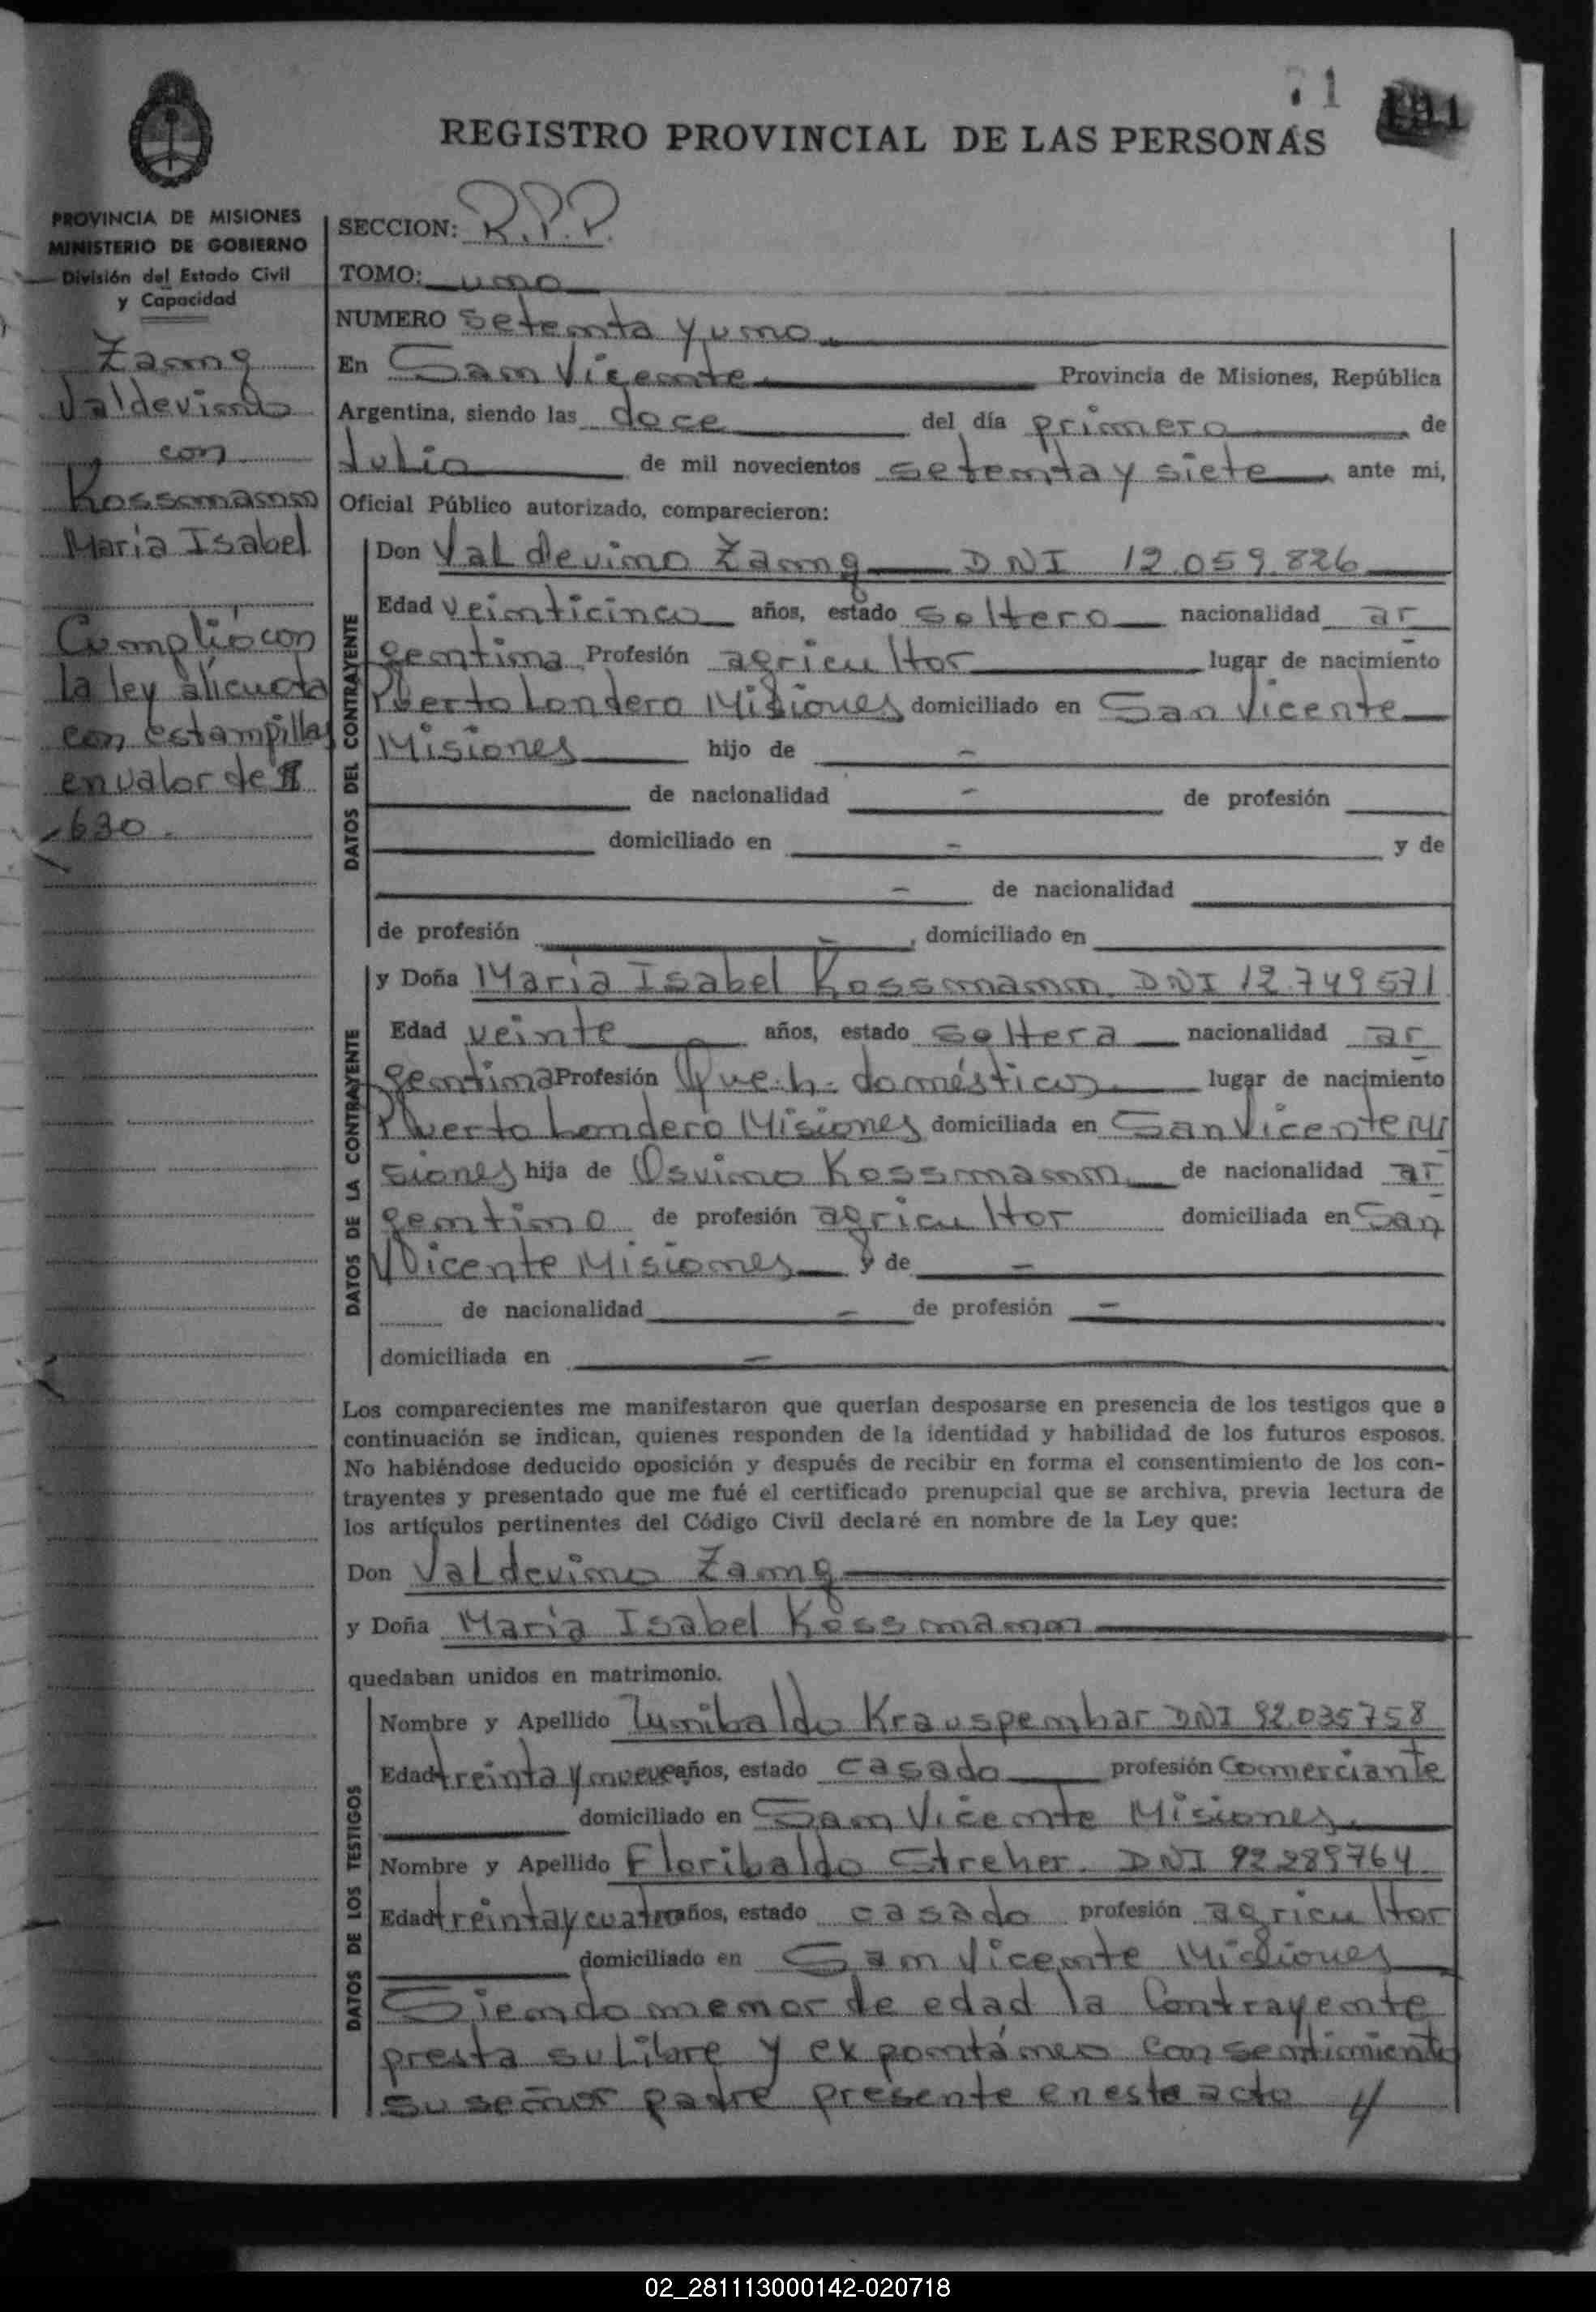 71
REGISTRO PROVINCIAL DE LAS PERSONAS
PROVINCIA DE MISIONES
MINISTERIO DE GOBIERNO
División del Estado Civil
y Capacidad
Zanng
Valdevino
con
Kossmann
María Isabel
Cumplió con
la ley alícuota
con estampillas
en valor de $
630.
SECCION: R.P.P.
TOMO: uno
NUMERO setenta y uno
En San Vicente Provincia de Misiones, República
Argentina, siendo las doce del día primero de
Julio de mil novecientos setenta y siete ante mi,
Oficial Público autorizado, comparecieron:
DATOS DEL CONTRAYENTE
Don Valdevino Zanng DNI 12.059.826
Edad veinticinco años, estado soltero nacionalidad ar
gentina Profesión agricultor lugar de nacimiento
Puerto Londero Misiones domiciliado en San Vicente
Misiones hijo de -
de nacionalidad - de profesión
domiciliado en - y de
- de nacionalidad
de profesión - , domiciliado en
DATOS DE LA CONTRAYENTE
y Doña María Isabel Kossmann DNI 12.749571
Edad veinte años, estado soltera nacionalidad ar
gentina Profesión Queh. domésticos lugar de nacimiento
Puerto Londero Misiones domiciliada en San Vicente Mi
siones hija de Osvino Kossmann de nacionalidad ar
gentino de profesión agricultor domiciliada en San
Vicente Misiones y de -
de nacionalidad - de profesión -
domiciliada en -
Los comparecientes me manifestaron que querían desposarse en presencia de los testigos que a
continuación se indican, quienes responden de la identidad y habilidad de los futuros esposos.
No habiéndose deducido oposición y después de recibir en forma el consentimiento de los con-
trayentes y presentado que me fué el certificado prenupcial que se archiva, previa lectura de
los artículos pertinentes del Código Civil declaré en nombre de la Ley que:
Don Valdevino Zanng
y Doña María Isabel Kossmann
quedaban unidos en matrimonio.
DATOS DE LOS TESTIGOS
Nombre y Apellido Lunibaldo Krauspenhar DNI 92.035758
Edad treinta y nueve años, estado casado profesión Comerciante
domiciliado en San Vicente Misiones
Nombre y Apellido Floribaldo Streher DNI 92 289764
Edad treinta y cuatro años, estado casado profesión agricultor
domiciliado en San Vicente Misiones
Siendo menor de edad la Contrayente
presta su libre y expontáneo consentimiento
su señor padre presente en este acto
02_281113000142-020718